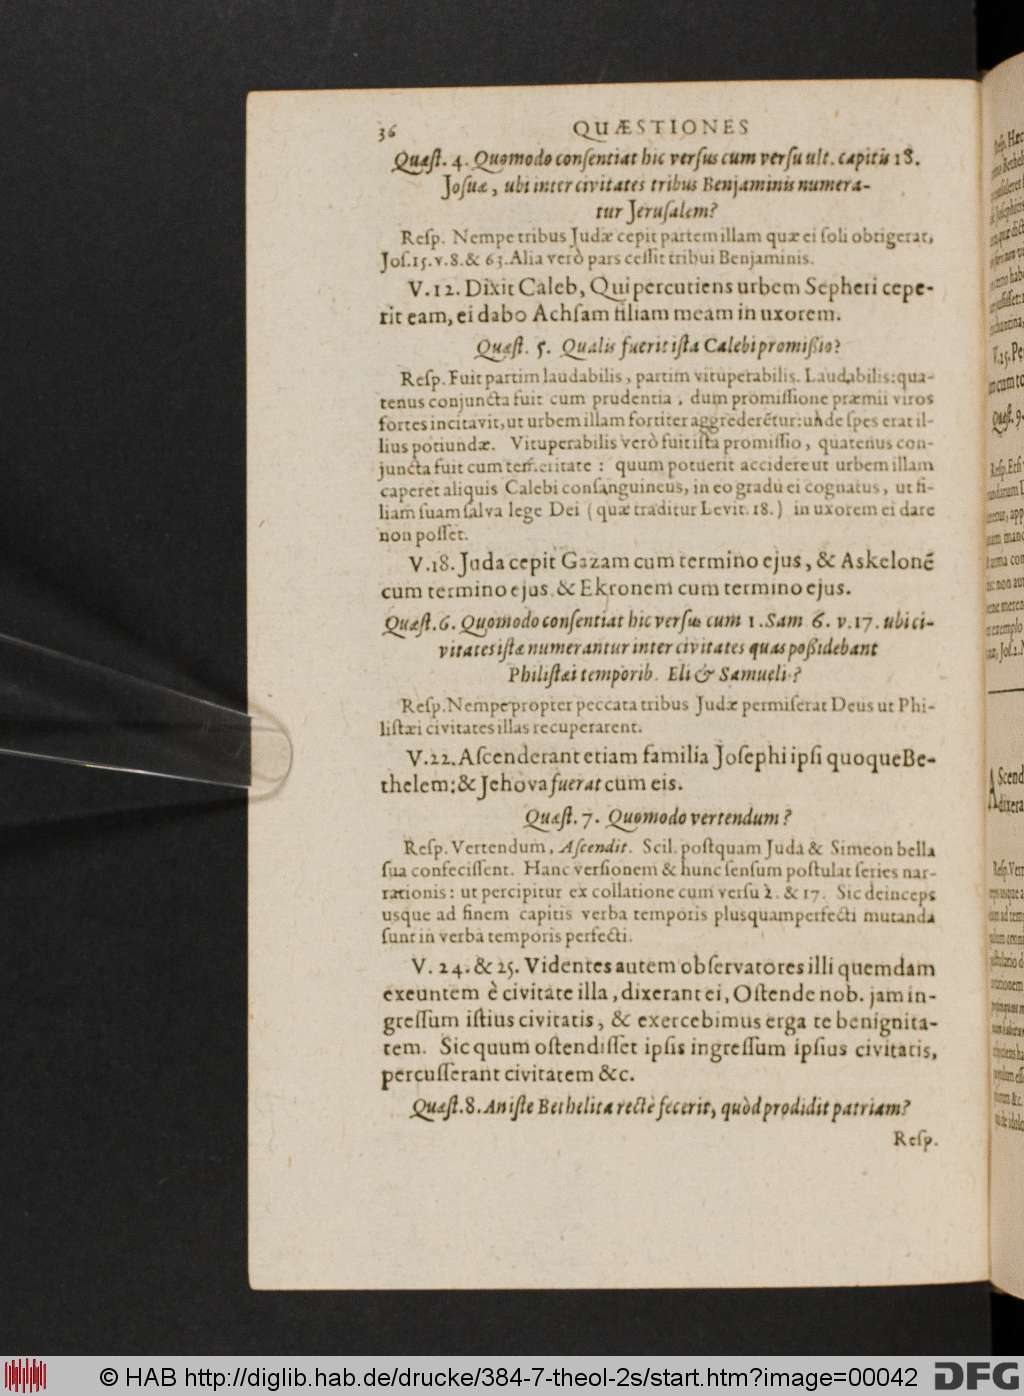 36 QUÆSTIONES
Quæst. 4. Quomodo consentiat hic versus cum versu ult. capitis 18.
Josuæ, ubi inter civitates tribus Benjaminis numera-
tur Jerusalem?
Resp. Nempe tribus Judæ cepit partem illam quæ ei soli obtigerat,
Jos. 15. v. 8. & 63. Alia verò pars cessit tribui Benjaminis.
V. 12. Dixit Caleb, Qui percutiens urbem Sepheri cepe-
rit eam, ei dabo Achsam filiam meam in uxorem.
Quæst. 5. Qualis fuerit ista Calebi promißio?
Resp. Fuit partim laudabilis, partim vituperabilis. Laudabilis: qua-
tenus conjuncta fuit cum prudentia, dum promissione præmii viros
fortes incitavit, ut urbem illam fortiter aggrederētur: unde spes erat il-
lius potiundæ. Vituperabilis verò fuit ista promissio, quatenus con-
juncta fuit cum temeritate: quum potuerit accidere ut urbem illam
caperet aliquis Calebi consanguineus, in eo gradu ei cognatus, ut fi-
liam suam salva lege Dei (quæ traditur Levit. 18.) in uxorem ei dare
non posset.
V. 18. Juda cepit Gazam cum termino ejus, & Askelonē
cum termino ejus, & Ekronem cum termino ejus.
Quæst. 6. Quomodo consentiat hic versus cum 1. Sam 6. v. 17. ubi ci-
vitates istæ numerantur inter civitates quas poßidebant
Philistæi temporib. Eli & Samueli?
Resp. Nempe propter peccata tribus Judæ permiserat Deus ut Phi-
listæi civitates illas recuperarent.
V. 22. Ascenderant etiam familia Josephi ipsi quoque Be-
thelem: & Jehova fuerat cum eis.
Quæst. 7. Quomodo vertendum?
Resp. Vertendum, Ascendit. Scil. postquam Juda & Simeon bella
sua confecissent. Hanc versionem & hunc sensum postulat series nar-
rationis: ut percipitur ex collatione cum versu 2. & 17. Sic deinceps
usque ad finem capitis verba temporis plusquamperfecti mutanda
sunt in verba temporis perfecti.
V. 24. & 25. Videntes autem observatores illi quemdam
exeuntem è civitate illa, dixerant ei, Ostende nob. jam in-
gressum istius civitatis, & exercebimus erga te benignita-
tem. Sic quum ostendisset ipsis ingressum ipsius civitatis,
percusserant civitatem &c.
Quæst. 8. An iste Bethelita rectè fecerit, quòd prodidit patriam?
Resp.
© HAB http://diglib.hab.de/drucke/384-7-theol-2s/start.htm?image=00042 DFG